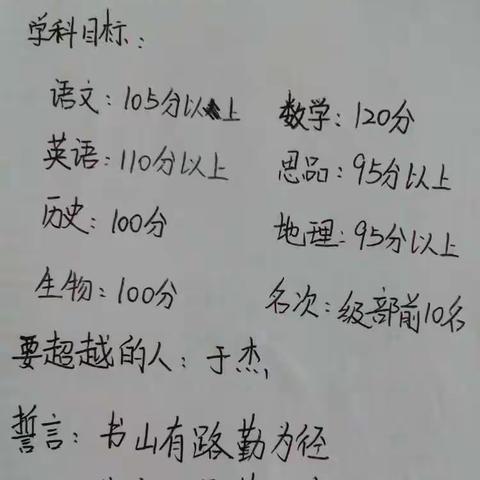 学科目标:
语文:105分以上 数学:120分
英语:110分以上 思品:95分以上
历史:100分 地理:95分以上
生物:100分 名次:级部前10名
要超越的人:于杰,
誓言:书山有路勤为径